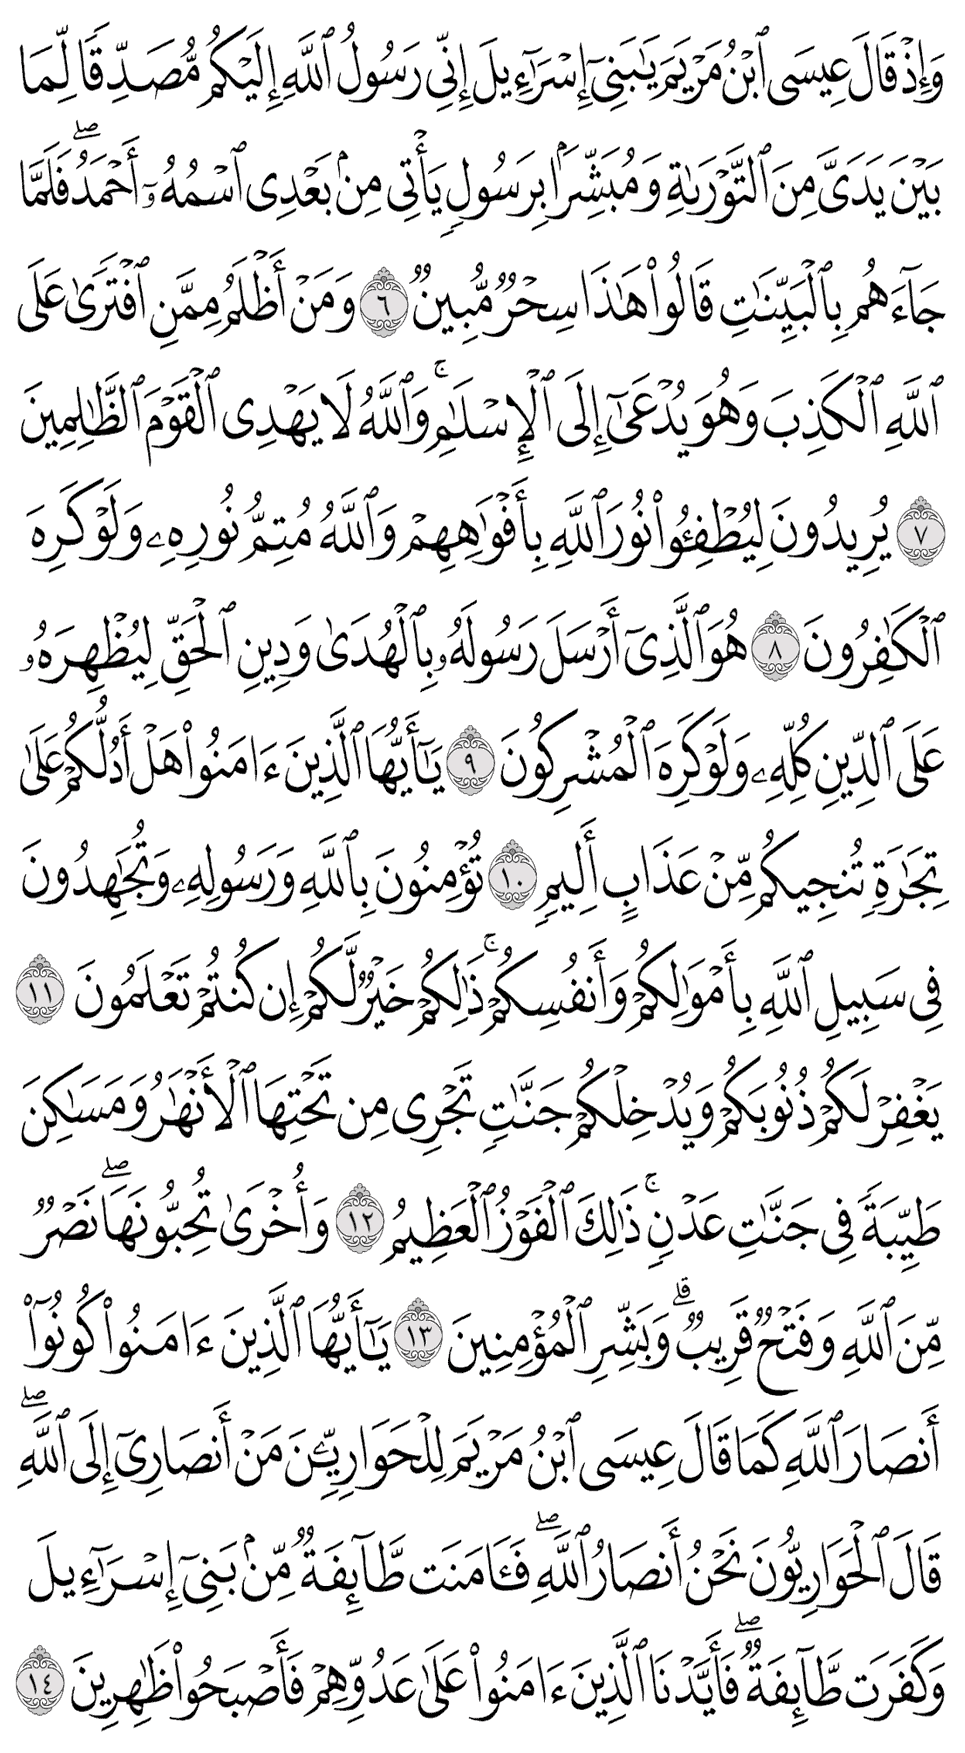 وَإِذۡ قَالَ عِيسَى ٱبۡنُ مَرۡيَمَ يَٰبَنِيٓ إِسۡرَٰٓءِيلَ إِنِّي رَسُولُ ٱللَّهِ إِلَيۡكُم مُّصَدِّقٗا لِّمَا
بَيۡنَ يَدَيَّ مِنَ ٱلتَّوۡرَىٰةِ وَمُبَشِّرَۢا بِرَسُولٖ يَأۡتِي مِنۢ بَعۡدِي ٱسۡمُهُۥٓ أَحۡمَدُۖ فَلَمَّا
جَآءَهُم بِٱلۡبَيِّنَٰتِ قَالُواْ هَٰذَا سِحۡرٞ مُّبِينٞ ٦ وَمَنۡ أَظۡلَمُ مِمَّنِ ٱفۡتَرَىٰ عَلَى
ٱللَّهِ ٱلۡكَذِبَ وَهُوَ يُدۡعَىٰٓ إِلَى ٱلۡإِسۡلَٰمِۚ وَٱللَّهُ لَا يَهۡدِي ٱلۡقَوۡمَ ٱلظَّٰلِمِينَ
٧ يُرِيدُونَ لِيُطۡفِـُٔواْ نُورَ ٱللَّهِ بِأَفۡوَٰهِهِمۡ وَٱللَّهُ مُتِمُّ نُورِهِۦ وَلَوۡ كَرِهَ
ٱلۡكَٰفِرُونَ ٨ هُوَ ٱلَّذِيٓ أَرۡسَلَ رَسُولَهُۥ بِٱلۡهُدَىٰ وَدِينِ ٱلۡحَقِّ لِيُظۡهِرَهُۥ
عَلَى ٱلدِّينِ كُلِّهِۦ وَلَوۡ كَرِهَ ٱلۡمُشۡرِكُونَ ٩ يَٰٓأَيُّهَا ٱلَّذِينَ ءَامَنُواْ هَلۡ أَدُلُّكُمۡ عَلَىٰ
تِجَٰرَةٖ تُنجِيكُم مِّنۡ عَذَابٍ أَلِيمٖ ١٠ تُؤۡمِنُونَ بِٱللَّهِ وَرَسُولِهِۦ وَتُجَٰهِدُونَ
فِي سَبِيلِ ٱللَّهِ بِأَمۡوَٰلِكُمۡ وَأَنفُسِكُمۡۚ ذَٰلِكُمۡ خَيۡرٞ لَّكُمۡ إِن كُنتُمۡ تَعۡلَمُونَ ١١
يَغۡفِرۡ لَكُمۡ ذُنُوبَكُمۡ وَيُدۡخِلۡكُمۡ جَنَّٰتٖ تَجۡرِي مِن تَحۡتِهَا ٱلۡأَنۡهَٰرُ وَمَسَٰكِنَ
طَيِّبَةٗ فِي جَنَّٰتِ عَدۡنٖۚ ذَٰلِكَ ٱلۡفَوۡزُ ٱلۡعَظِيمُ ١٢ وَأُخۡرَىٰ تُحِبُّونَهَاۖ نَصۡرٞ
مِّنَ ٱللَّهِ وَفَتۡحٞ قَرِيبٞۗ وَبَشِّرِ ٱلۡمُؤۡمِنِينَ ١٣ يَٰٓأَيُّهَا ٱلَّذِينَ ءَامَنُواْ كُونُوٓاْ
أَنصَارَ ٱللَّهِ كَمَا قَالَ عِيسَى ٱبۡنُ مَرۡيَمَ لِلۡحَوَارِيِّـۧنَ مَنۡ أَنصَارِيٓ إِلَى ٱللَّهِۖ
قَالَ ٱلۡحَوَارِيُّونَ نَحۡنُ أَنصَارُ ٱللَّهِۖ فَـَٔامَنَت طَّآئِفَةٞ مِّنۢ بَنِيٓ إِسۡرَٰٓءِيلَ
وَكَفَرَت طَّآئِفَةٞۖ فَأَيَّدۡنَا ٱلَّذِينَ ءَامَنُواْ عَلَىٰ عَدُوِّهِمۡ فَأَصۡبَحُواْ ظَٰهِرِينَ ١٤